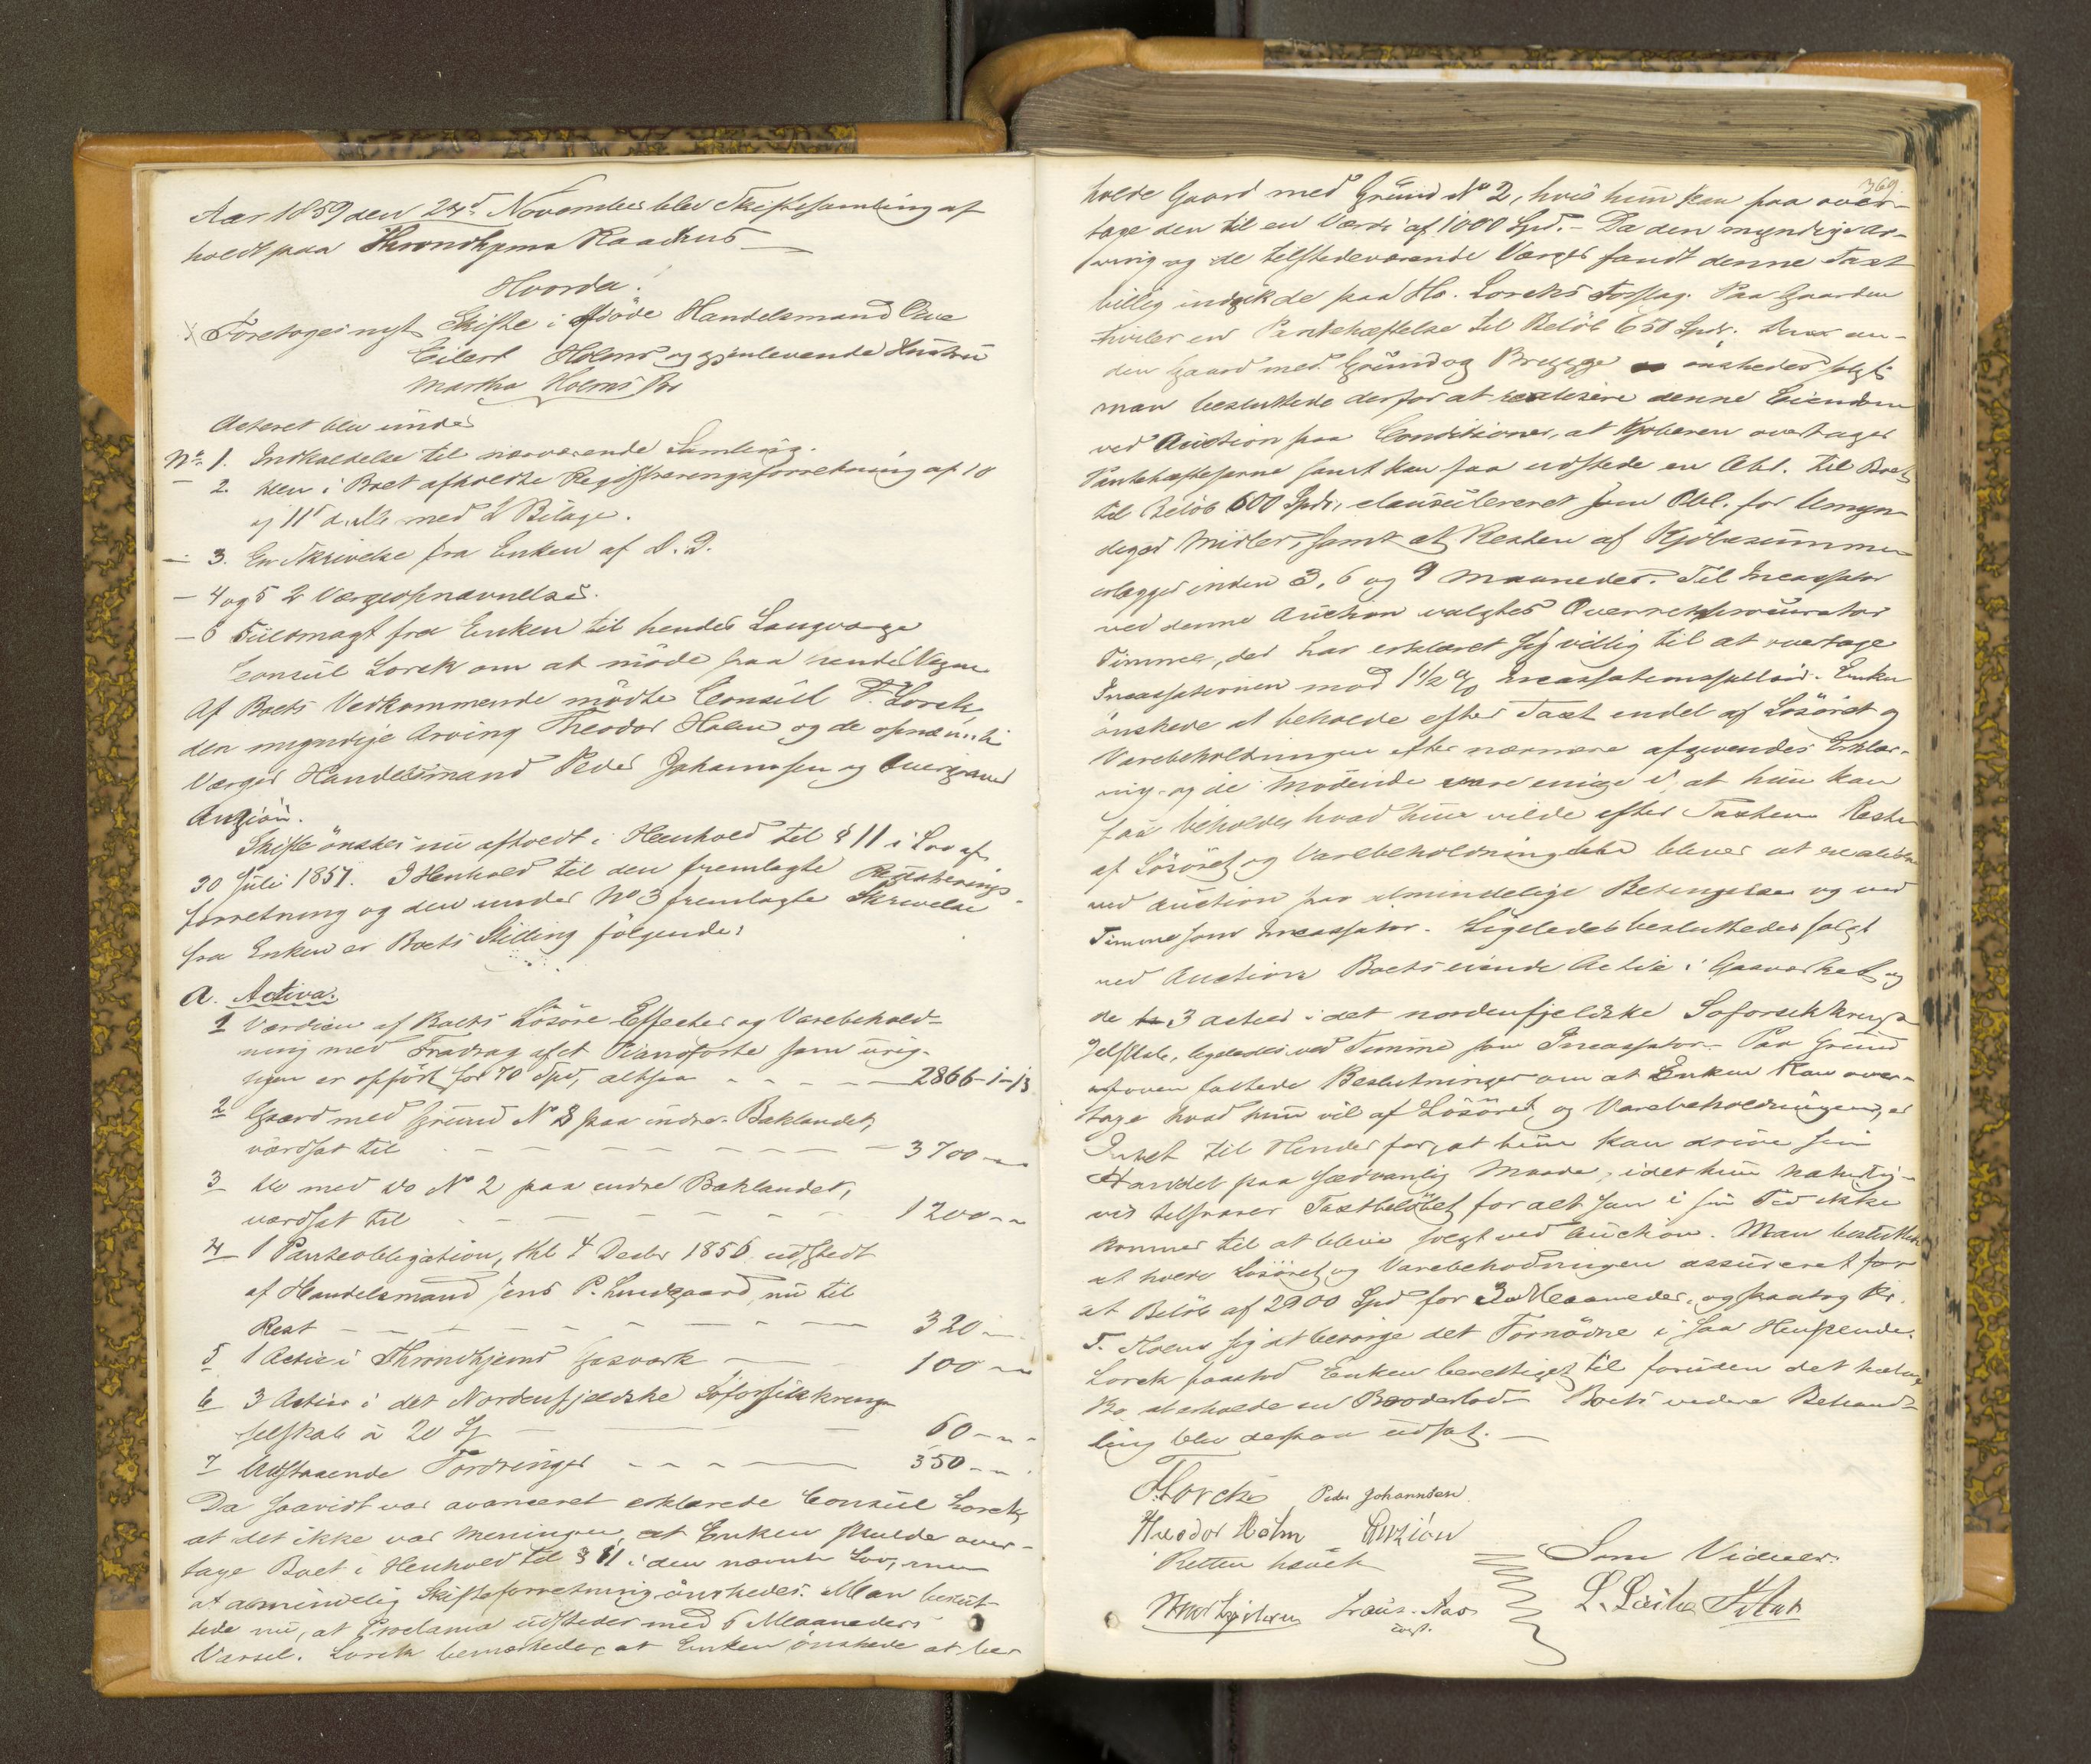 Aar 1859 den 24de November blev Skiftesamling af
holdt paa Throndhjems Raadhus
Hvorda!
Foretoges nyt Skifte i afdöde Handelsmand Ove
Eilert Holms og gjenlevende Hustru
Martha Holms Bo
Acteret blev under
No 1. Indkaldelse til nærværende Samling.
2. den i Boet afholdte Registreringsforretning af 10
og 11te d. M. med 2 Bilage.
— 3. En Skrivelse fra Enken af D. D.
— 4 og 5 2 Værgeopnævnelser.
— 6 Fuldmagt fra Enken til hendes Laugværge
Consul Lorck om at möde paa hendes Vegne
Af Boets Vedkommende mödte Consul F. Lorck,
den myndige Arving Theodor Holm og de opnævnte
Værger Handelsmand Peder Johannsen og
Anzión.
Skifte önskes nu afholdt i Henhold til § 11 i Lov af
30 Juli 1851. I Henhold til den fremlagte Registrerings-
forretning og den under No 3 fremlagte Skrivelse
fra Enken er Boets Stilling fölgende:
A. Activa:
1 Værdien af Boets Lösöre Effecter og Varebehold-
ning med Fradrag af et Pianoforte som urig-
tigen er opfört for 70 Spd, altsaa - - - - 2866-1-13
2 Gaard med Grund No 3 paa indre Baklandet,
værdsat til - - - - - - - 3700 - -
3 do med do No 2 paa indre Baklandet,
værdsat til - - - - - - - 1200 - -
4 1 Panteobligation, dat 4 Decbr 1856 udstedt
af Handelsmand Jens P. Lundgaard, nu til
Rest - - - - - - - 320 - -
5 1 Actie i Throndhjems Gasværk - - 100 - -
6 3 Actier i det Nordenfjeldske Söforsikkrings
selskab à 20 Sp - - - 60 - -
7 Udstaaende Fordringer - - - - 350 - -
Da saavidt var avanceret erklærede Consul Lorck,
at det ikke var Meningen, at Enken skulde over-
tage Boet i Henhold til § 11 i den nævnte Lov, men
at almindelig Skifteforretning önskedes. Man beslut-
tede nu, at Proclama udstedes med 6 Maaneders
Varsel. Lorck bemærkede, at Enken önskede at be-
369.
holde Gaard med Grund No 2, hvis hun kan faa over-
tage den til en Værdi af 1000 Spd. - Da den myndige Ar-
ving og de tilstedeværende Værger fandt denne Taxt
billig indgik de paa Hr. Lorcks Forslag. Paa Gaarden
hviler en Pantehæftelse til Belöb 650 Spdr. Den an-
den Gaard med Grund og Brygge önskedes solgt
man besluttede derfor at realisere denne Eiendom
ved Auction paa Conditioner, at Kjöberen overtager
Pantehæftelserne samt kan faa udstede en Obl. til Boet
til Belöb 600 Spdr, clausuleret som Obl. for Umyn-
diges Midler, samt at Resten af Kjöbesummen
erlægges inden 3, 6 og 9 Maaneder. Til Incassator
ved denne Auction valgtes Overretsprocurator
Timme, der har erklæret sig villig til at overtage
Incassationen mod 1 1/2 % Incassationssalair. Enken
önskede at beholde efter Taxt endel af Lösöret og
Varebeholdningen efter nærmere afgivendes Erklær-
ing og de Mödende vare enige i, at hun kan
faa beholde, hvad hun vilde efter Taxten. Resten
af Lösöret og Varebeholdningen bliver at realisere
ved Auction paa almindelige Betingelser og med
Timme som Incassator. Ligeledes besluttedes solgt
ved Auction Boets eiende Actie i Gasværket og
de 3 actier i det nordenfjeldske Söforsikkrings
selskab, ligeledes ved Timme som Incassator. Paa Grund
af oven fattede Beslutninger om at Enken kan over-
tage hvad hun vil af Lösöret og Varebeholdningen, er
Intet til Hinder for, at hun kan drive sin
Handel paa sædvanlig Maade, idet hun naturlig-
vis tilsvarer Taxtbelöbet for alt som i sin Tid ikke
kommer til at blive solgt ved Auction. Man besluttede
at holde Lösöret og Varebeholdningen assureret for
et Belöb af 2900 Spd for 3 Maaneder, og paatog Hr.
T. Holm sig at besörge det Fornödne i saa Henseende.
Lorck paastod Enken berettiget til foruden det halve
Bo at erholde en Broderlod. Boets videre Behand-
ling blev derpaa udsat.
F. Lorck Peder Johannsen
Theodor Holm Anzión
Retten hævet
Som Vidner: